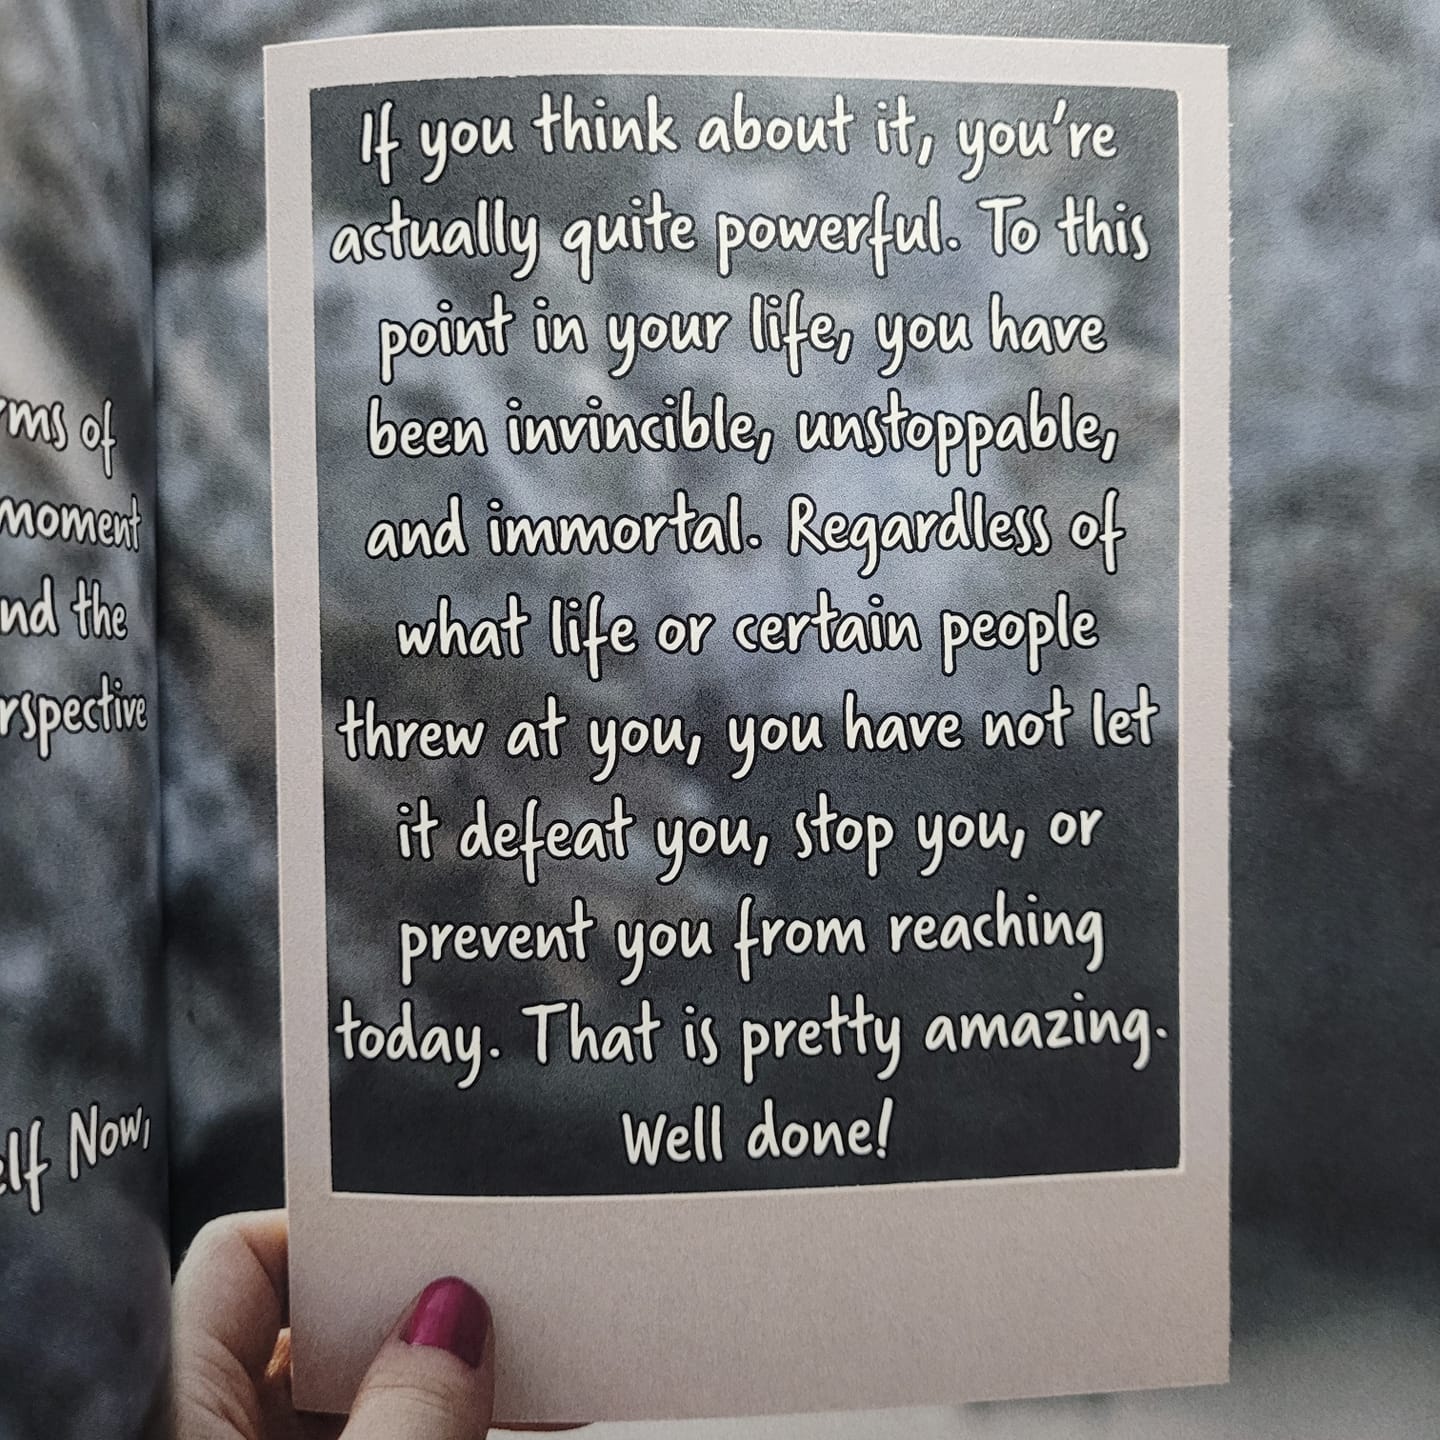 rms of
moment
nd the
rspective
elf Now,
If you think about it, you're
actually quite powerful. To this
point in your life, you have
been invincible, unstoppable,
and immortal. Regardless of
what life or certain people
threw at you, you have not let
it defeat you, stop you, or
prevent you from reaching
today. That is pretty amazing.
Well done!